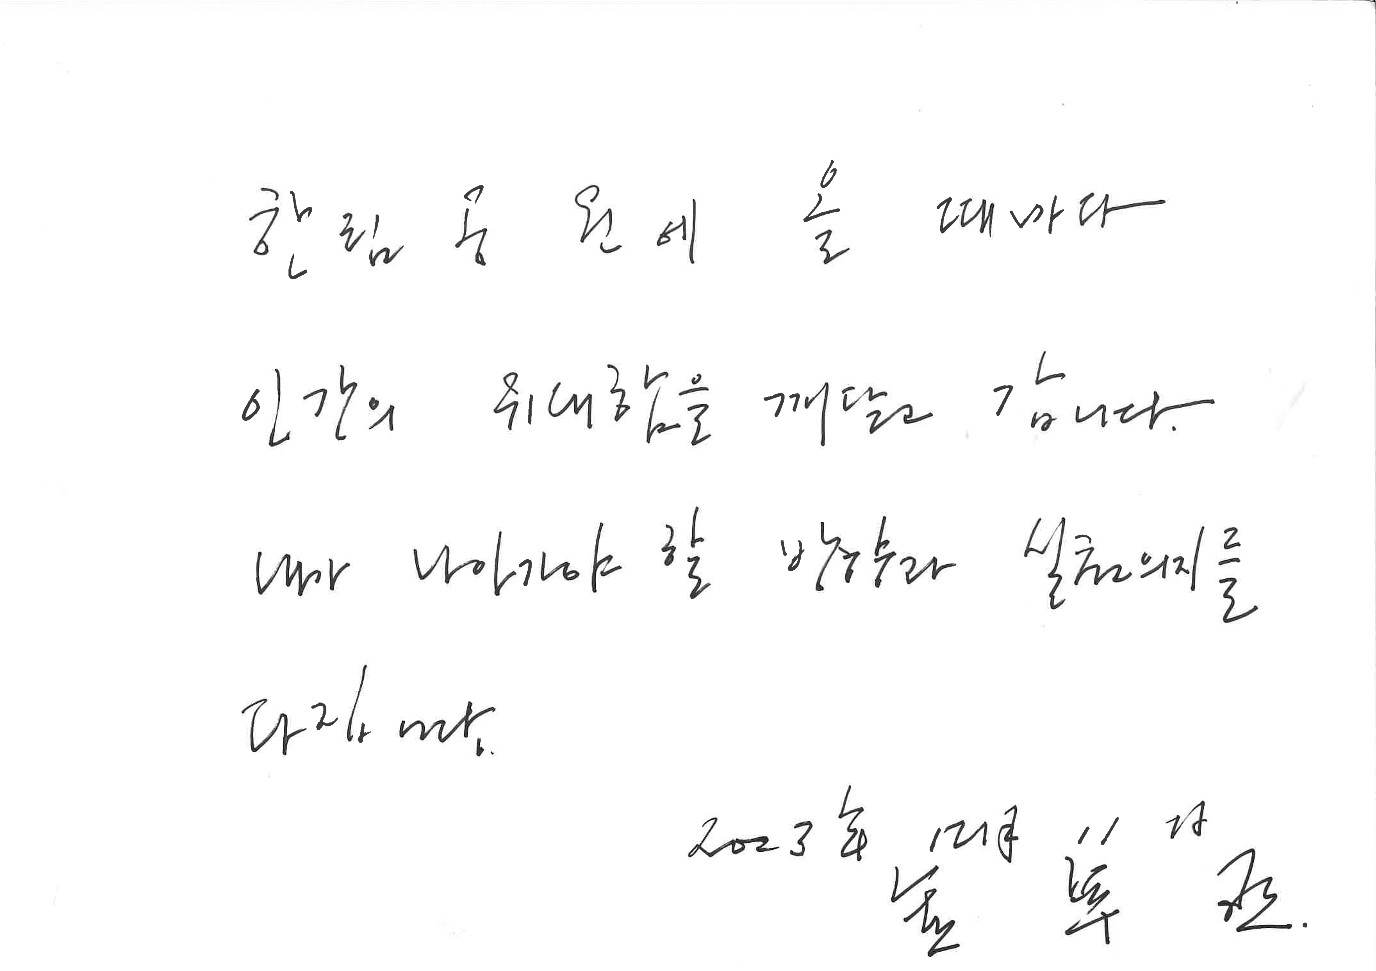 한림공원에 올 때마다
인간의 위대함을 깨닫고 갑니다.
내가 나아가야 할 방향과 실천의지를
다지며.
2023年 12月 11日